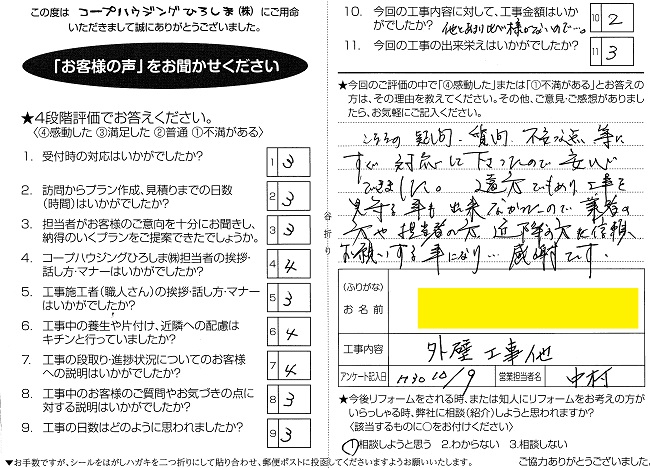 この度は コープハウジングひろしま(株) にご用命
いただきまして誠にありがとうございました。
「お客様の声」をお聞かせください
★4段階評価でお答えください。
〈④感動した ③満足した ②普通 ①不満がある〉
1. 受付時の対応はいかがでしたか? 1 3
2. 訪問からプラン作成、見積りまでの日数
(時間)はいかがでしたか? 2 3
3. 担当者がお客様のご意向を十分にお聞きし、
納得のいくプランをご提案できたでしょうか。 3 3
4. コープハウジングひろしま㈱担当者の挨拶・
話し方・マナーはいかがでしたか? 4 4
5. 工事施工者(職人さん)の挨拶・話し方・マナー
はいかがでしたか? 5 3
6. 工事中の養生や片付け、近隣への配慮は
キチンと行っていましたか? 6 4
7. 工事の段取り・進捗状況についてのお客様
への説明はいかがでしたか? 7 4
8. 工事中のお客様のご質問やお気づきの点に
対する説明はいかがでしたか? 8 3
9. 工事の日数はどのように思われましたか? 9 3
谷折り
10. 今回の工事内容に対して、工事金額はいか
がでしたか? 他とあり比べ様がないので…。 10 2
11. 今回の工事の出来栄えはいかがでしたか? 11 3
★今回のご評価の中で「④感動した」または「①不満がある」とお答えの
方は、その理由を教えてください。その他、ご意見・ご感想がありまし
たら、お気軽にご記入ください。
こちらの疑問、質問、不安な点等に
すぐ対応して下さったので安心
できました。 遠方でもあり工事を
見守る事も出来なかったので業者の
方や担当者の方 近所の方を信頼
お願いする事になり… 感謝です。
(ふりがな)
お名前
工事内容 外壁工事他
アンケート記入日 H30 10/9 営業担当者名 中村
★今後リフォームをされる時、または知人にリフォームをお考えの方が
いらっしゃる時、弊社に相談(紹介)しようと思われますか?
〈該当するものに○をお付けください〉
1.相談しようと思う 2.わからない 3.相談しない
▼お手数ですが、シールをはがしハガキを二つ折りにして貼り合わせ、郵便ポストに投函してくださいますようお願いいたします。 ご協力ありがとうございました。